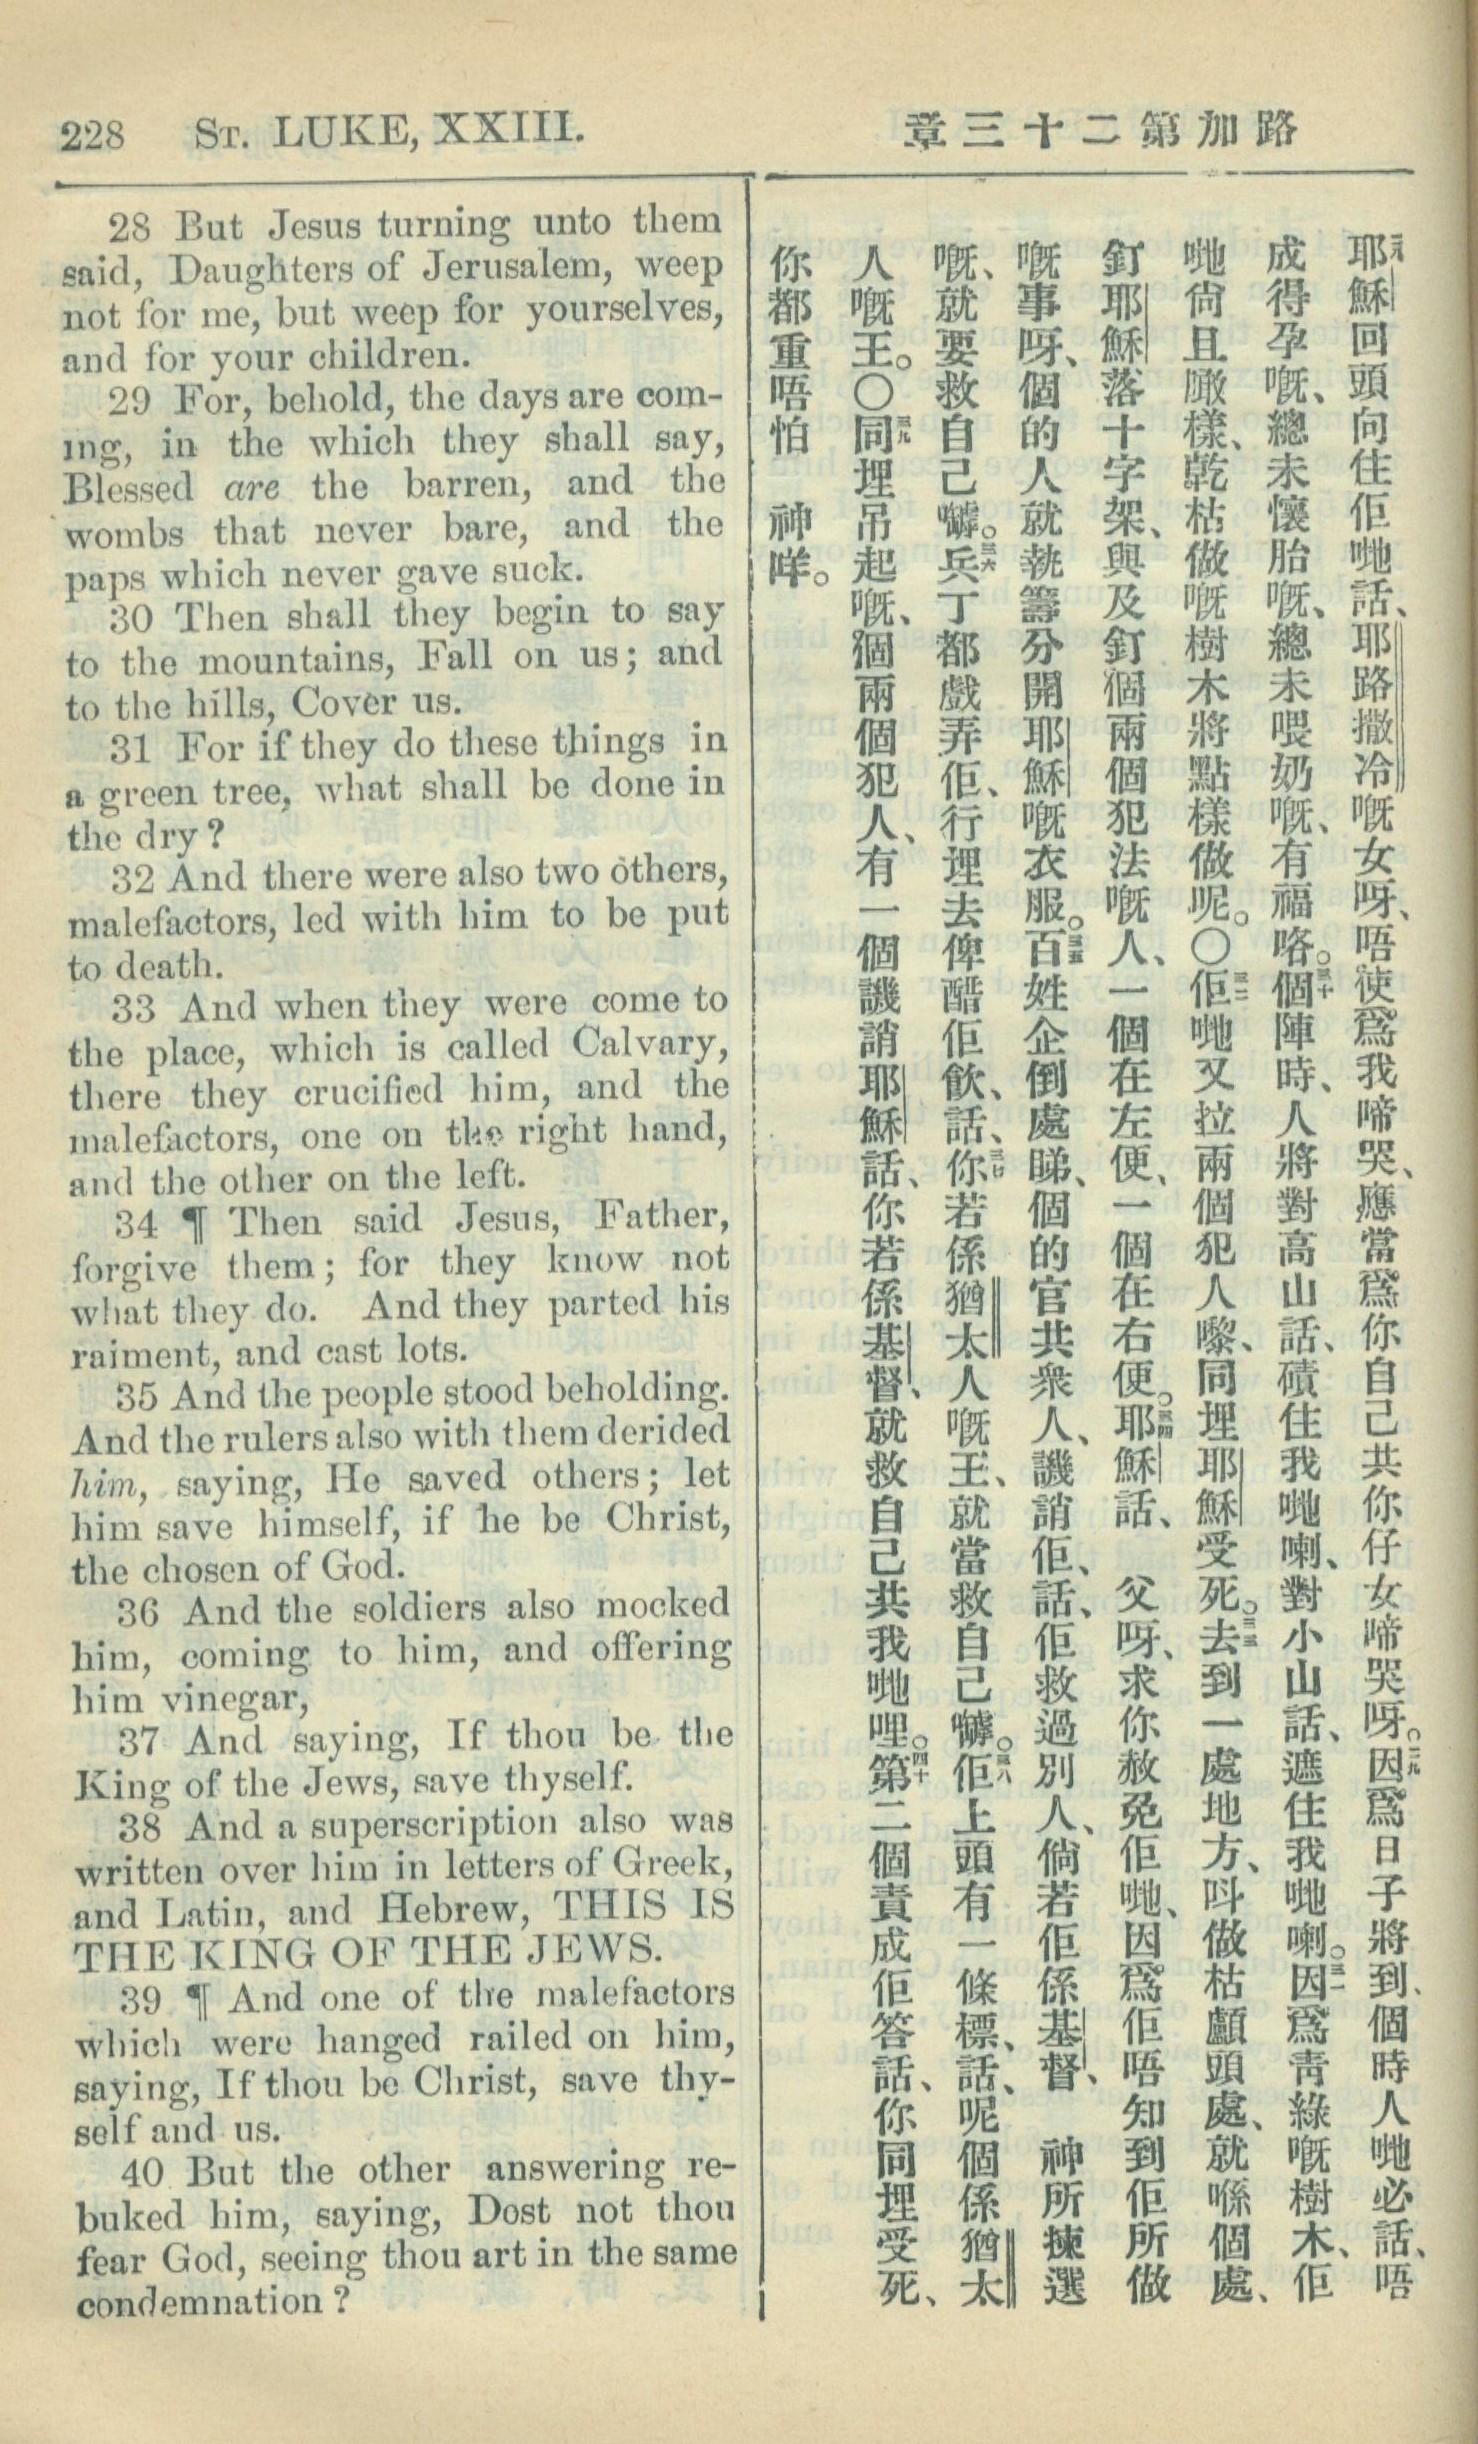 228 ST. LUKE, XXIII.
路加第二十三章
28 But Jesus turning unto them
said, Daughters of Jerusalem, weep
not for me, but weep for yourselves,
and for your children.
29 For, behold, the days are com-
ing, in the which they shall say,
Blessed are the barren, and the
wombs that never bare, and the
paps which never gave suck.
30 Then shall they begin to say
to the mountains, Fall on us; and
to the hills, Cover us.
31 For if they do these things in
a green tree, what shall be done in
the dry?
32 And there were also two others,
malefactors, led with him to be put
to death.
33 And when they were come to
the place, which is called Calvary,
there they crucified him, and the
malefactors, one on the right hand,
and the other on the left.
34 ¶ Then said Jesus, Father,
forgive them; for they know not
what they do. And they parted his
raiment, and cast lots.
35 And the people stood beholding.
And the rulers also with them derided
him, saying, He saved others; let
him save himself, if he be Christ,
the chosen of God.
36 And the soldiers also mocked
him, coming to him, and offering
him vinegar,
37 And saying, If thou be the
King of the Jews, save thyself.
38 And a superscription also was
written over him in letters of Greek,
and Latin, and Hebrew, THIS IS
THE KING OF THE JEWS.
39 ¶ And one of the malefactors
which were hanged railed on him,
saying, If thou be Christ, save thy-
self and us.
40 But the other answering re-
buked him, saying, Dost not thou
fear God, seeing thou art in the same
condemnation?
二八耶穌回頭向住佢哋話、耶路撒冷嘅女呀、唔使爲我啼哭、應當爲你自己共你仔女啼哭呀。二九因爲日子將到、個時人哋必話、唔
成得孕嘅、總未懷胎嘅、總未喂奶嘅、有福咯。三十個陣時、人將對高山話、磧住我哋喇、對小山話、遮住我哋喇。三一因爲靑綠嘅樹木、佢
哋尙且噉樣、乾枯做嘅樹木將點樣做呢。〇三二佢哋又拉兩個犯人嚟、同埋耶穌受死。三三去到一處地方、呌做枯顱頭處、就喺個處、
釘耶穌落十字架、與及釘個兩個犯法嘅人、一個在左便、一個在右便。三四耶穌話、父呀、求你赦免佢哋、因爲佢唔知到佢所做
嘅事呀、個的人就執籌分開耶穌嘅衣服。三五百姓企倒處睇、個的官共衆人、譏誚佢、話、佢救過別人、倘若佢係基督、神所揀選
嘅、就要救自己嚹。三六兵丁都戲弄佢、行埋去俾醋佢飮、話、三七你若係猶太人嘅王、就當救自己嚹。三八佢上頭有一條標、話、呢個係猶太
人嘅王。〇三九同埋吊起嘅、個兩個犯人、有一個譏誚耶穌話、你若係基督、就救自己共我哋哩。四十第二個責成佢答話、你同埋受死、
你都重唔怕 神咩。